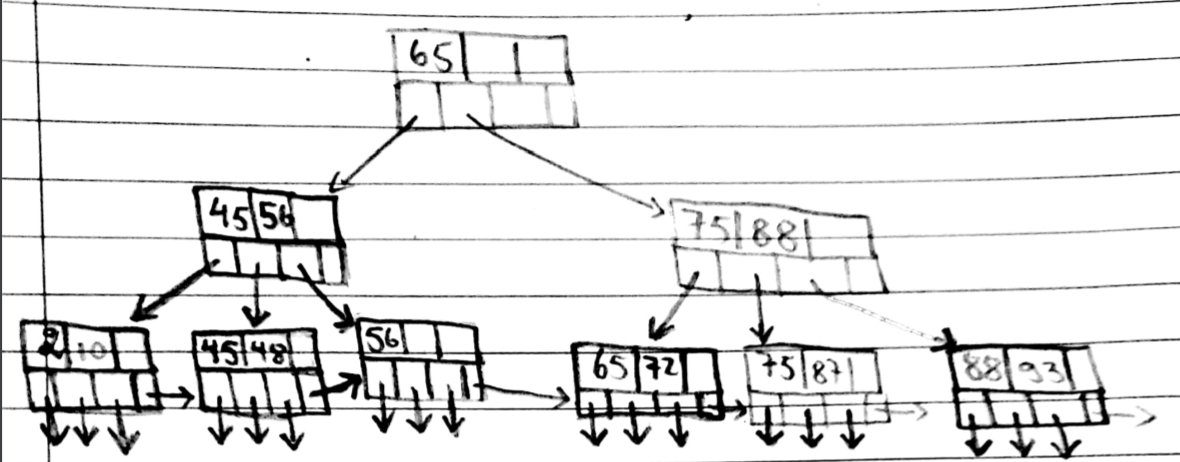 65
45 56
75 88
2 10
45 48
56
65 72
75 87
88 93